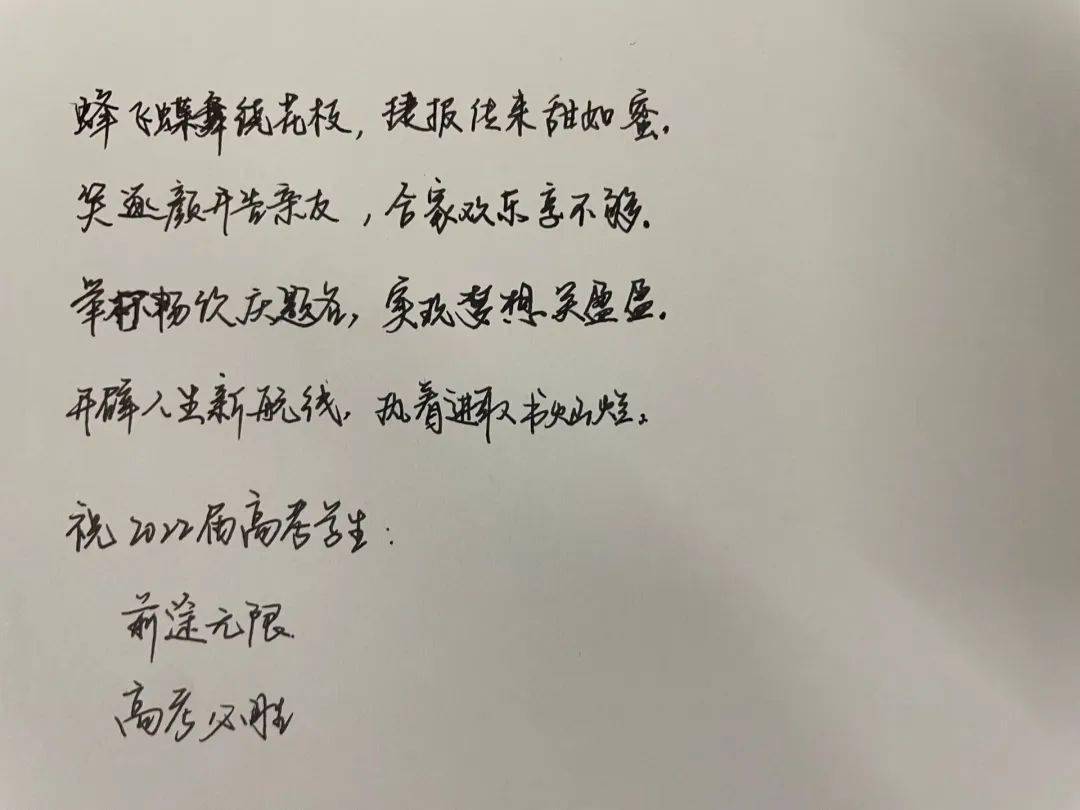 蜂飞蝶舞绕花枝，捷报传来甜如蜜.
笑逐颜开告亲友，合家欢乐享不够.
举杯畅饮庆题名，实现梦想笑盈盈.
开辟人生新航线，执着进取书灿烂.
祝2022届高考学生：
前途无限
高考必胜